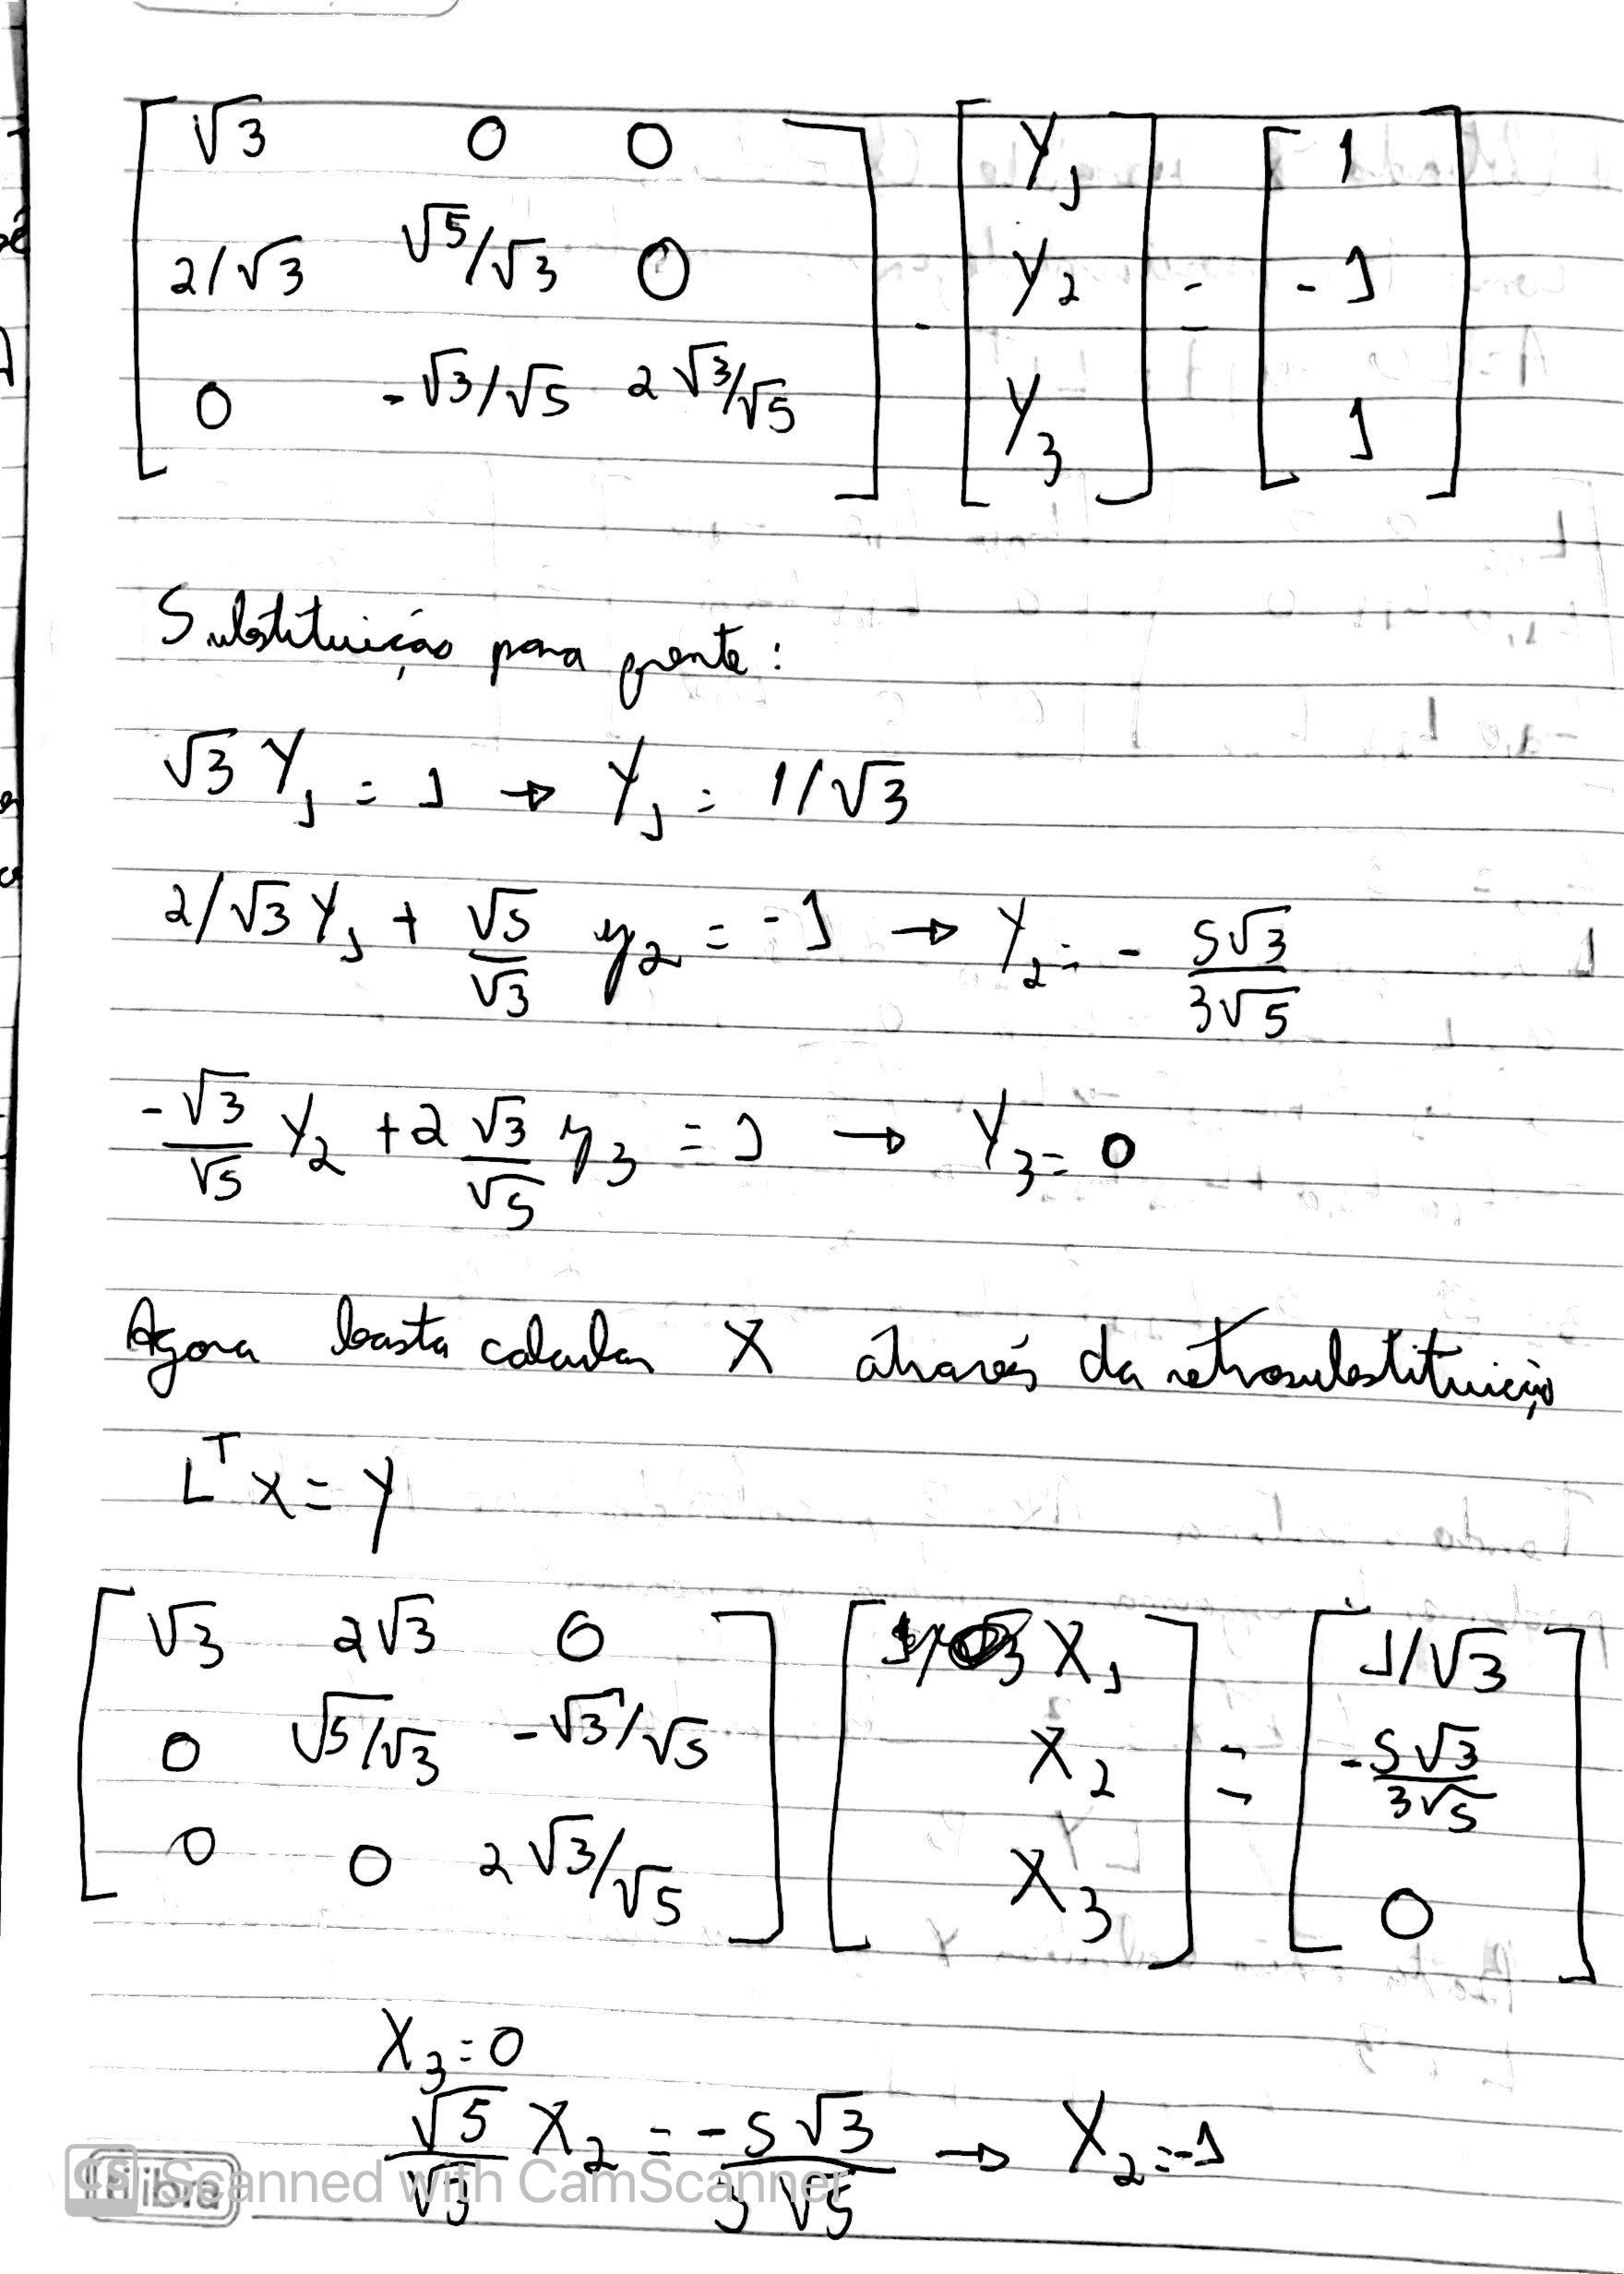 [ √3 0 0 ] [ Y₁ ] [ 1 ]
[ 2/√3 √5/√3 0 ] · [ Y₂ ] = [ -1 ]
[ 0 -√3/√5 2√3/√5 ] [ Y₃ ] [ 1 ]
Substituição para frente:
√3 Y₁ = 1 → Y₁ = 1/√3
2/√3 Y₁ + √5/√3 y₂ = -1 → Y₂ = - 5√3/3√5
-√3/√5 Y₂ + 2 √3/√5 y₃ = 1 → Y₃ = 0
Agora basta calcular X através da retrosubstituição
Lᵀ X = Y
[ √3 2√3 0 ] [ X₁ ] [ 1/√3 ]
[ 0 √5/√3 -√3/√5 ] [ X₂ ] = [ -5√3/3√5 ]
[ 0 0 2√3/√5 ] [ X₃ ] [ 0 ]
X₃ = 0
√5/√3 X₂ = -5√3/3√5 → X₂ = -1
CS Scanned with CamScanner
libra